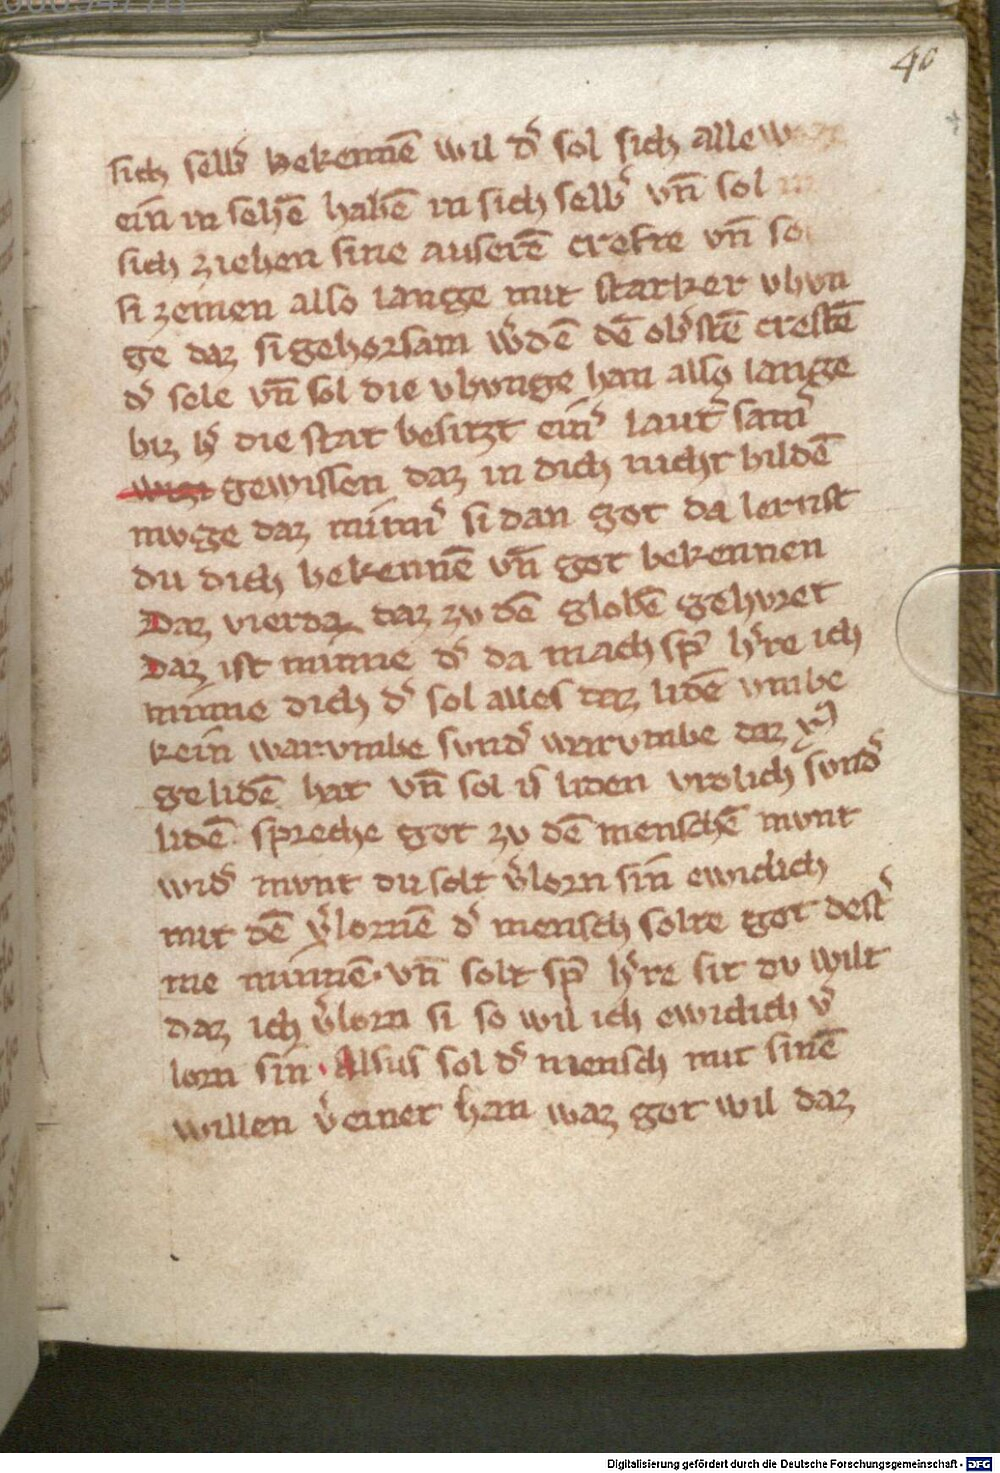 46
sich selb᷑ bekennē wil d᷑ sol sich alle
ein in sehē habē in sich selb᷑ vn̄ sol
sich ziehen sine auserē crefte vn̄ so
si zemen also lange mit starker vbvn
ge daz si gehorsam w᷑dē dē ob᷑stē creftē
d᷑ sele vn̄ sol die vbvnge han also lange
biz h᷑ die stat besitzt ein᷑ laut᷑ sam᷑
gewissen daz in dich nicht bildē
mvge daz minn᷑ si dan got da lernst
du dich bekennē vn̄ got bekennen
Daz vierda daz zv dē globē gehvret
Daz ist minne d᷑ da mach sp̄ h᷑re ich
minne dich d᷑ sol alles daz lidē vmbe
kein warvmbe svnd᷑ warvmbe daz
gelidē hat vn̄ sol is liden vrolich svnd᷑
lidē spreche got zv dē menschē mvnt
wid᷑ mvnt du solt v᷑lorn sin ewiclich
mit dē v᷑lornē d᷑ mensch solte got dest᷑
me minnē· vn̄ solt sp̄ h᷑re sit dv wilt
daz ich v᷑lorn si so wil ich ewiclich v᷑
lorn sin · Alsus sol d᷑ mensch mit sinē
willen v᷑einet han waz got wil daz
Digitalisierung gefördert durch die Deutsche Forschungsgemeinschaft - DFG